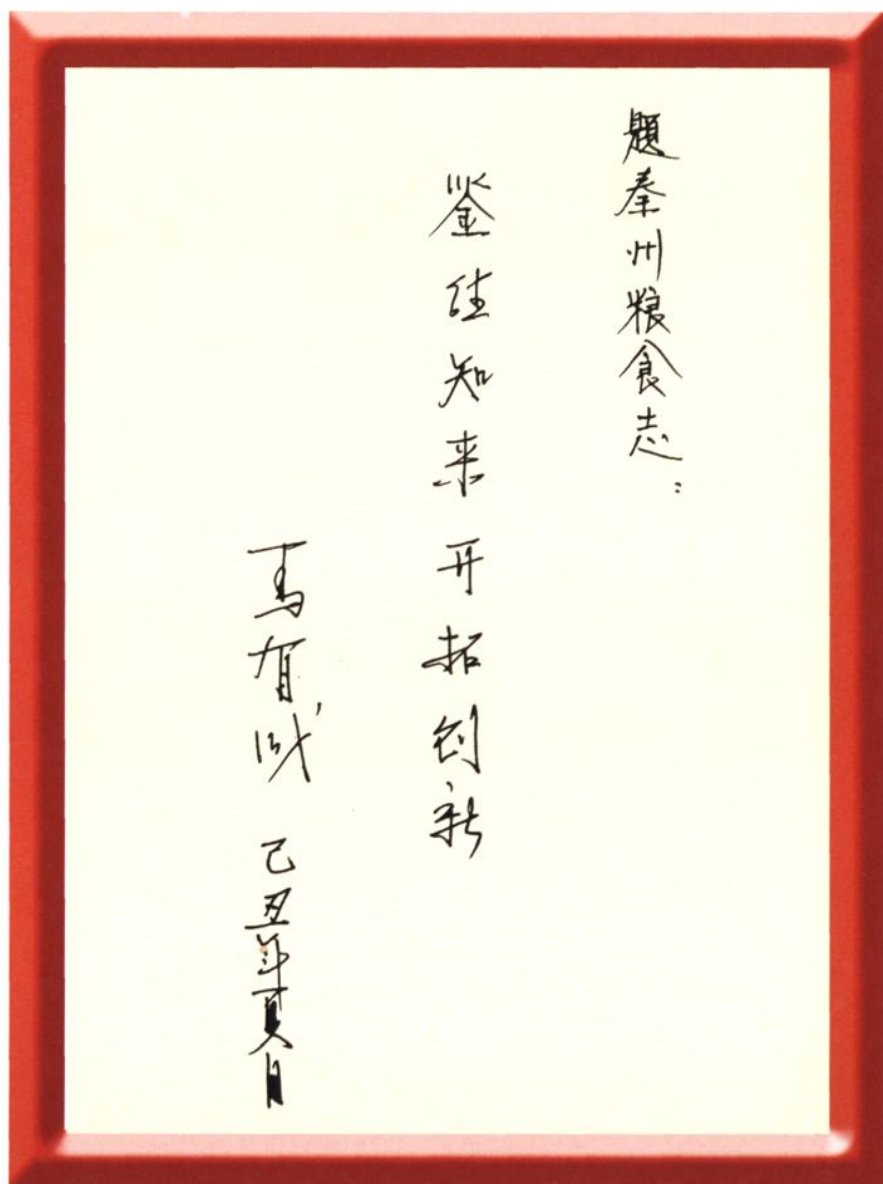 题秦州粮食志：
鉴往知来 开拓创新
马有成 己丑年夏日